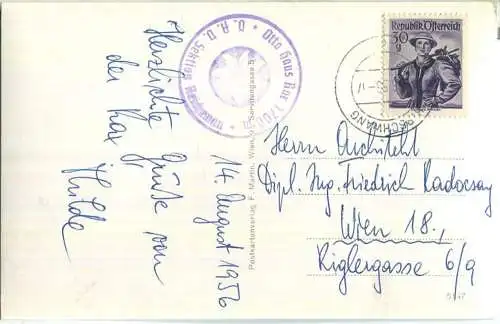 Herzlichste Grüße von
der Rax
Hilde
14. August 1956
Otto Haus Rax 1700
Ö. A. V. Sektion
Postkartenverlag F. Martin, Wien, Servitengasse 5
Republik Österreich
30 g
Herrn Architekt
Dipl. Ing. Friedrich Radocsay
Wien 18.,
Riglergasse 6/9